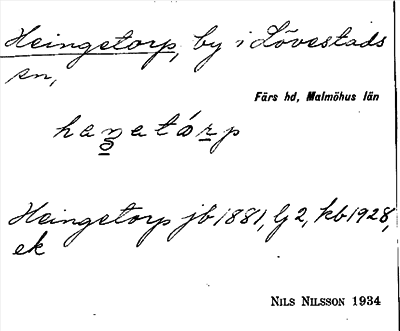 Heingetorp, by i Lövestads
sn,
Färs hd, Malmöhus län
haŋatórp
Heingetorp jb 1881, G 2, kb 1928,
ek
NILS NILSSON 1934